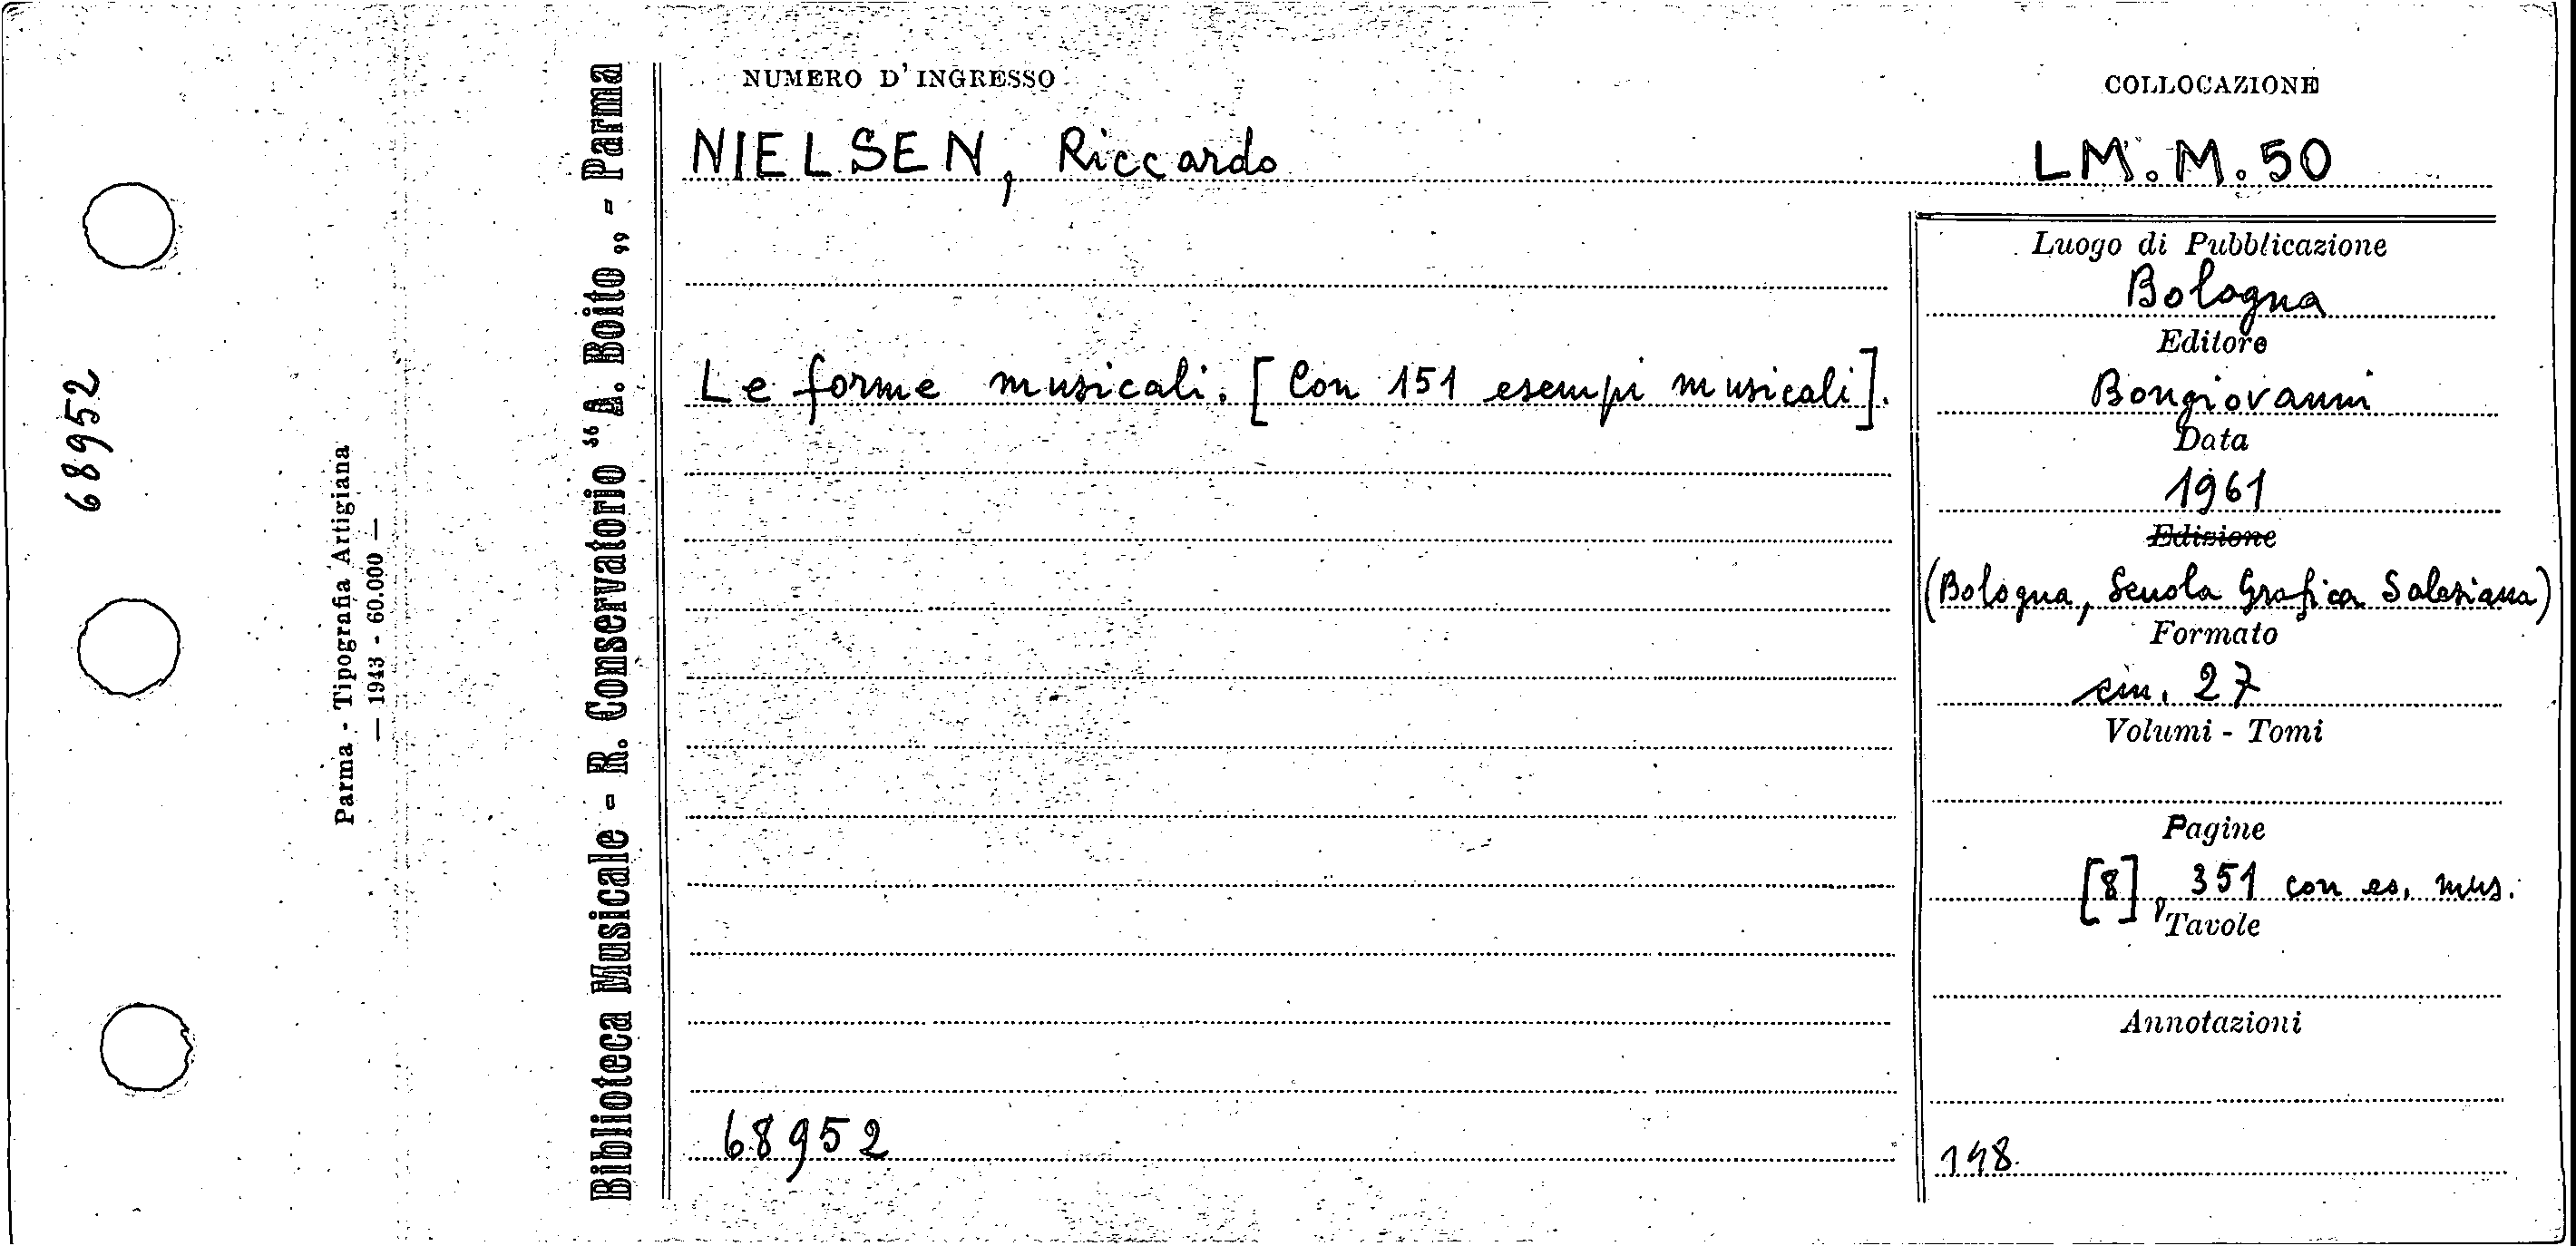 68952
Parma - Tipografia Artigiana
— 1943 - 60.000 —
Biblioteca Musicale - R. Conservatorio “A. Boito„ - Parma
NUMERO D'INGRESSO
COLLOCAZIONE
NIELSEN, Riccardo
LM. M. 50
Le forme musicali. [Con 151 esempi musicali].
68952
Luogo di Pubblicazione
Bologna
Editore
Bongiovanni
Data
1961
Edizione
(Bologna, Scuola Grafica Salesiana)
Formato
cm. 27
Volumi - Tomi
Pagine
[8], 351 con es. mus.
Tavole
Annotazioni
148